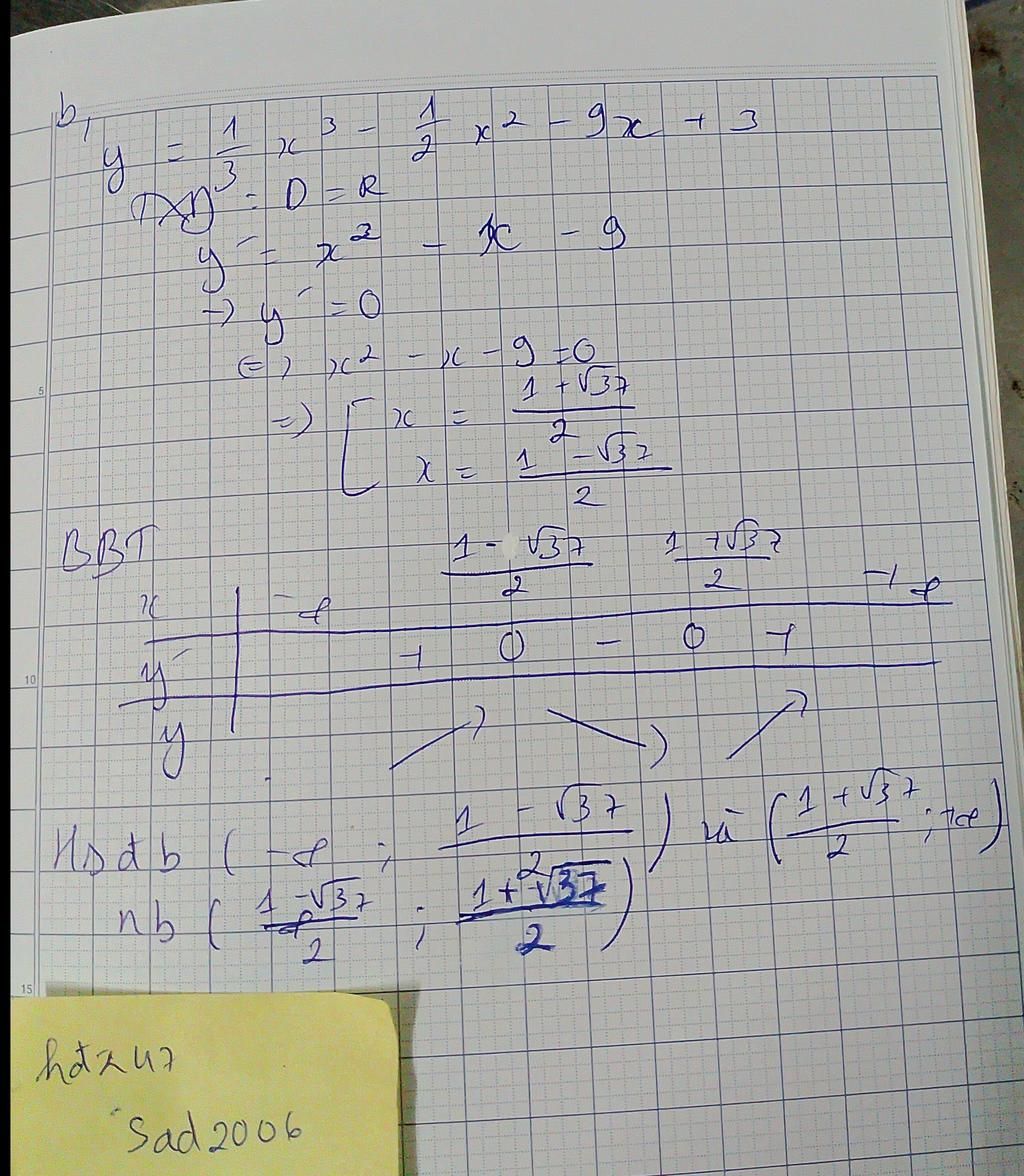 b,
y = 1/3 x³ - 1/2 x² - 9x + 3
TXĐ : D = R
y' = x² - x - 9
→ y' = 0
⇔ x² - x - 9 = 0
=> [ x = (1 + √37)/2
x = (1 - √37)/2
BBT
x | -∞ (1 - √37)/2 (1 + √37)/2 +∞
y' | + 0 - 0 +
y | ↗ ↘ ↗
Hsđb ( -∞ ; (1 - √37)/2 ) và ( (1 + √37)/2 ; +∞ )
nb ( (1 - √37)/2 ; (1 + √37)/2 )
5
10
15
hotz47
Sad2006